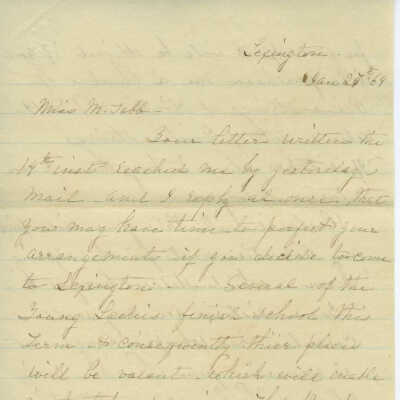 Lexington
Jan 25th 69
Miss M. Tebb.
Your letter written the
19th inst reached me by yesterdays
mail and I reply at once that
you may have time to perfect your
arrangements if you decide to come
to Lexington. Several of the
Young Ladies finish school this
Term & consequently thier places
will be vacant which will enable